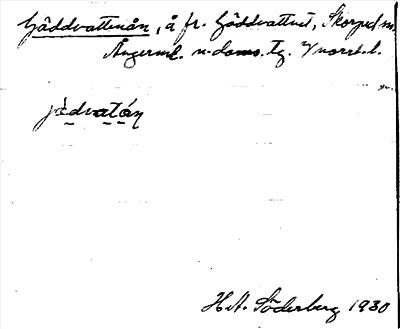 Gäddvattenån, å fr. Gäddvattnet, Skorped sn.
Ångerml. n. doms. tg. Västernorrl. l.
jèdvatán
H.A. Söderberg 1930